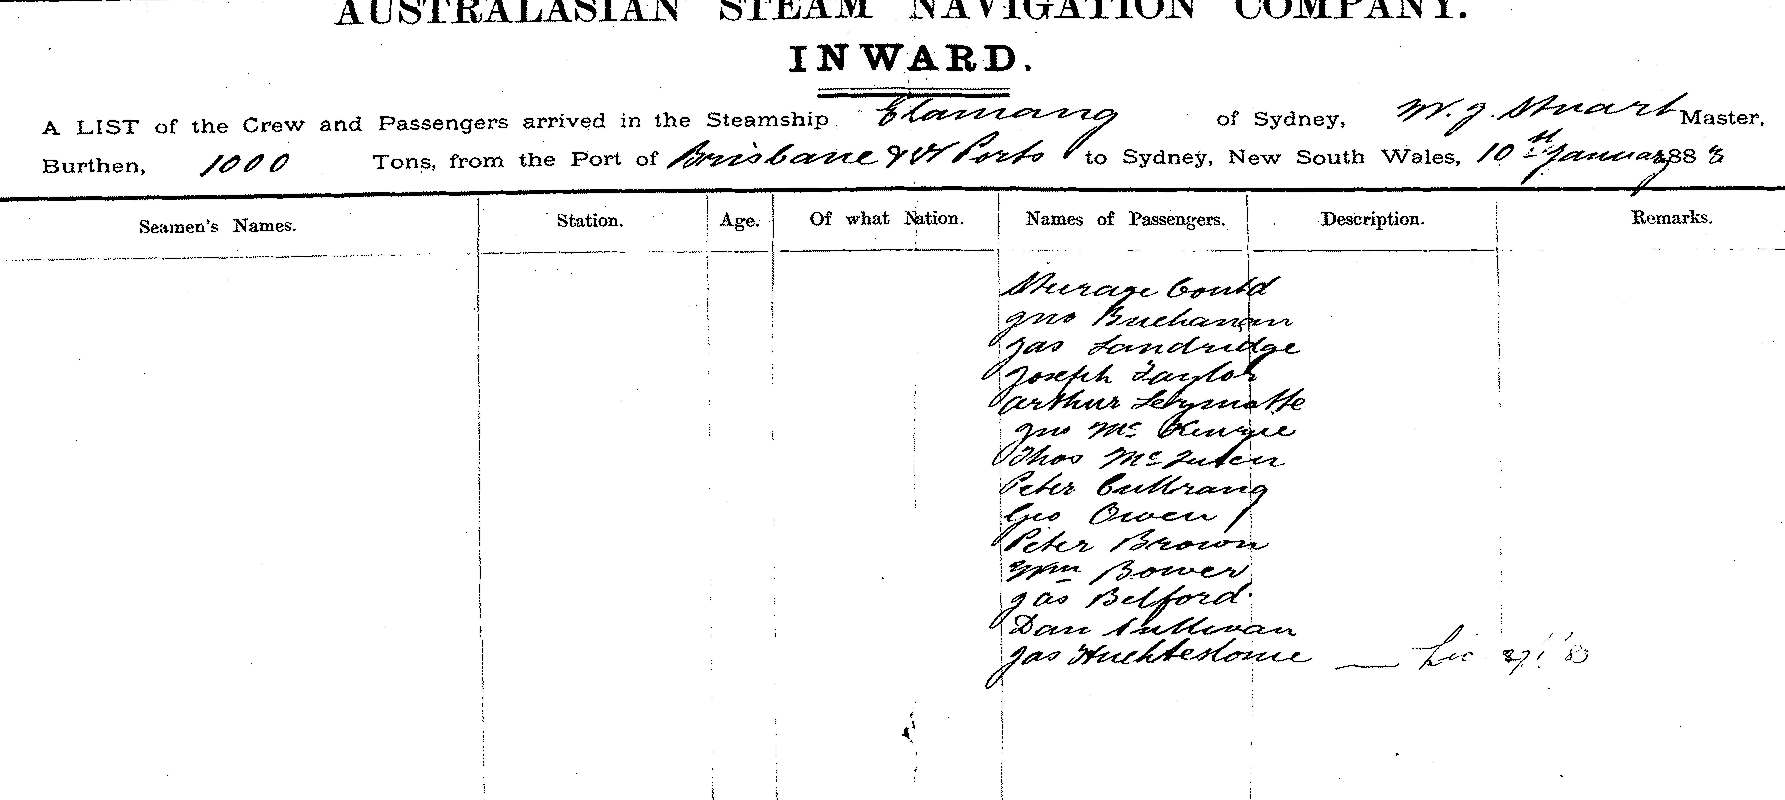 AUSTRALASIAN STEAM NAVIGATION COMPANY.
INWARD.
A LIST of the Crew and Passengers arrived in the Steamship Elamang of Sydney, W. J. Stuart Master,
Burthen, 1000 Tons, from the Port of Brisbane & Ports to Sydney, New South Wales, 10th January 1883
Seamen's Names. Station. Age. Of what Nation. Names of Passengers. Description. Remarks.
Steerage Contd
Jno Buchanan
Jas Landridge
Joseph Taylor
Arthur
Jno McKenzie
Thos
Peter
Geo Owen
Peter Brown
Wm Bower
Jas Belford
Dan Sullivan
Jas